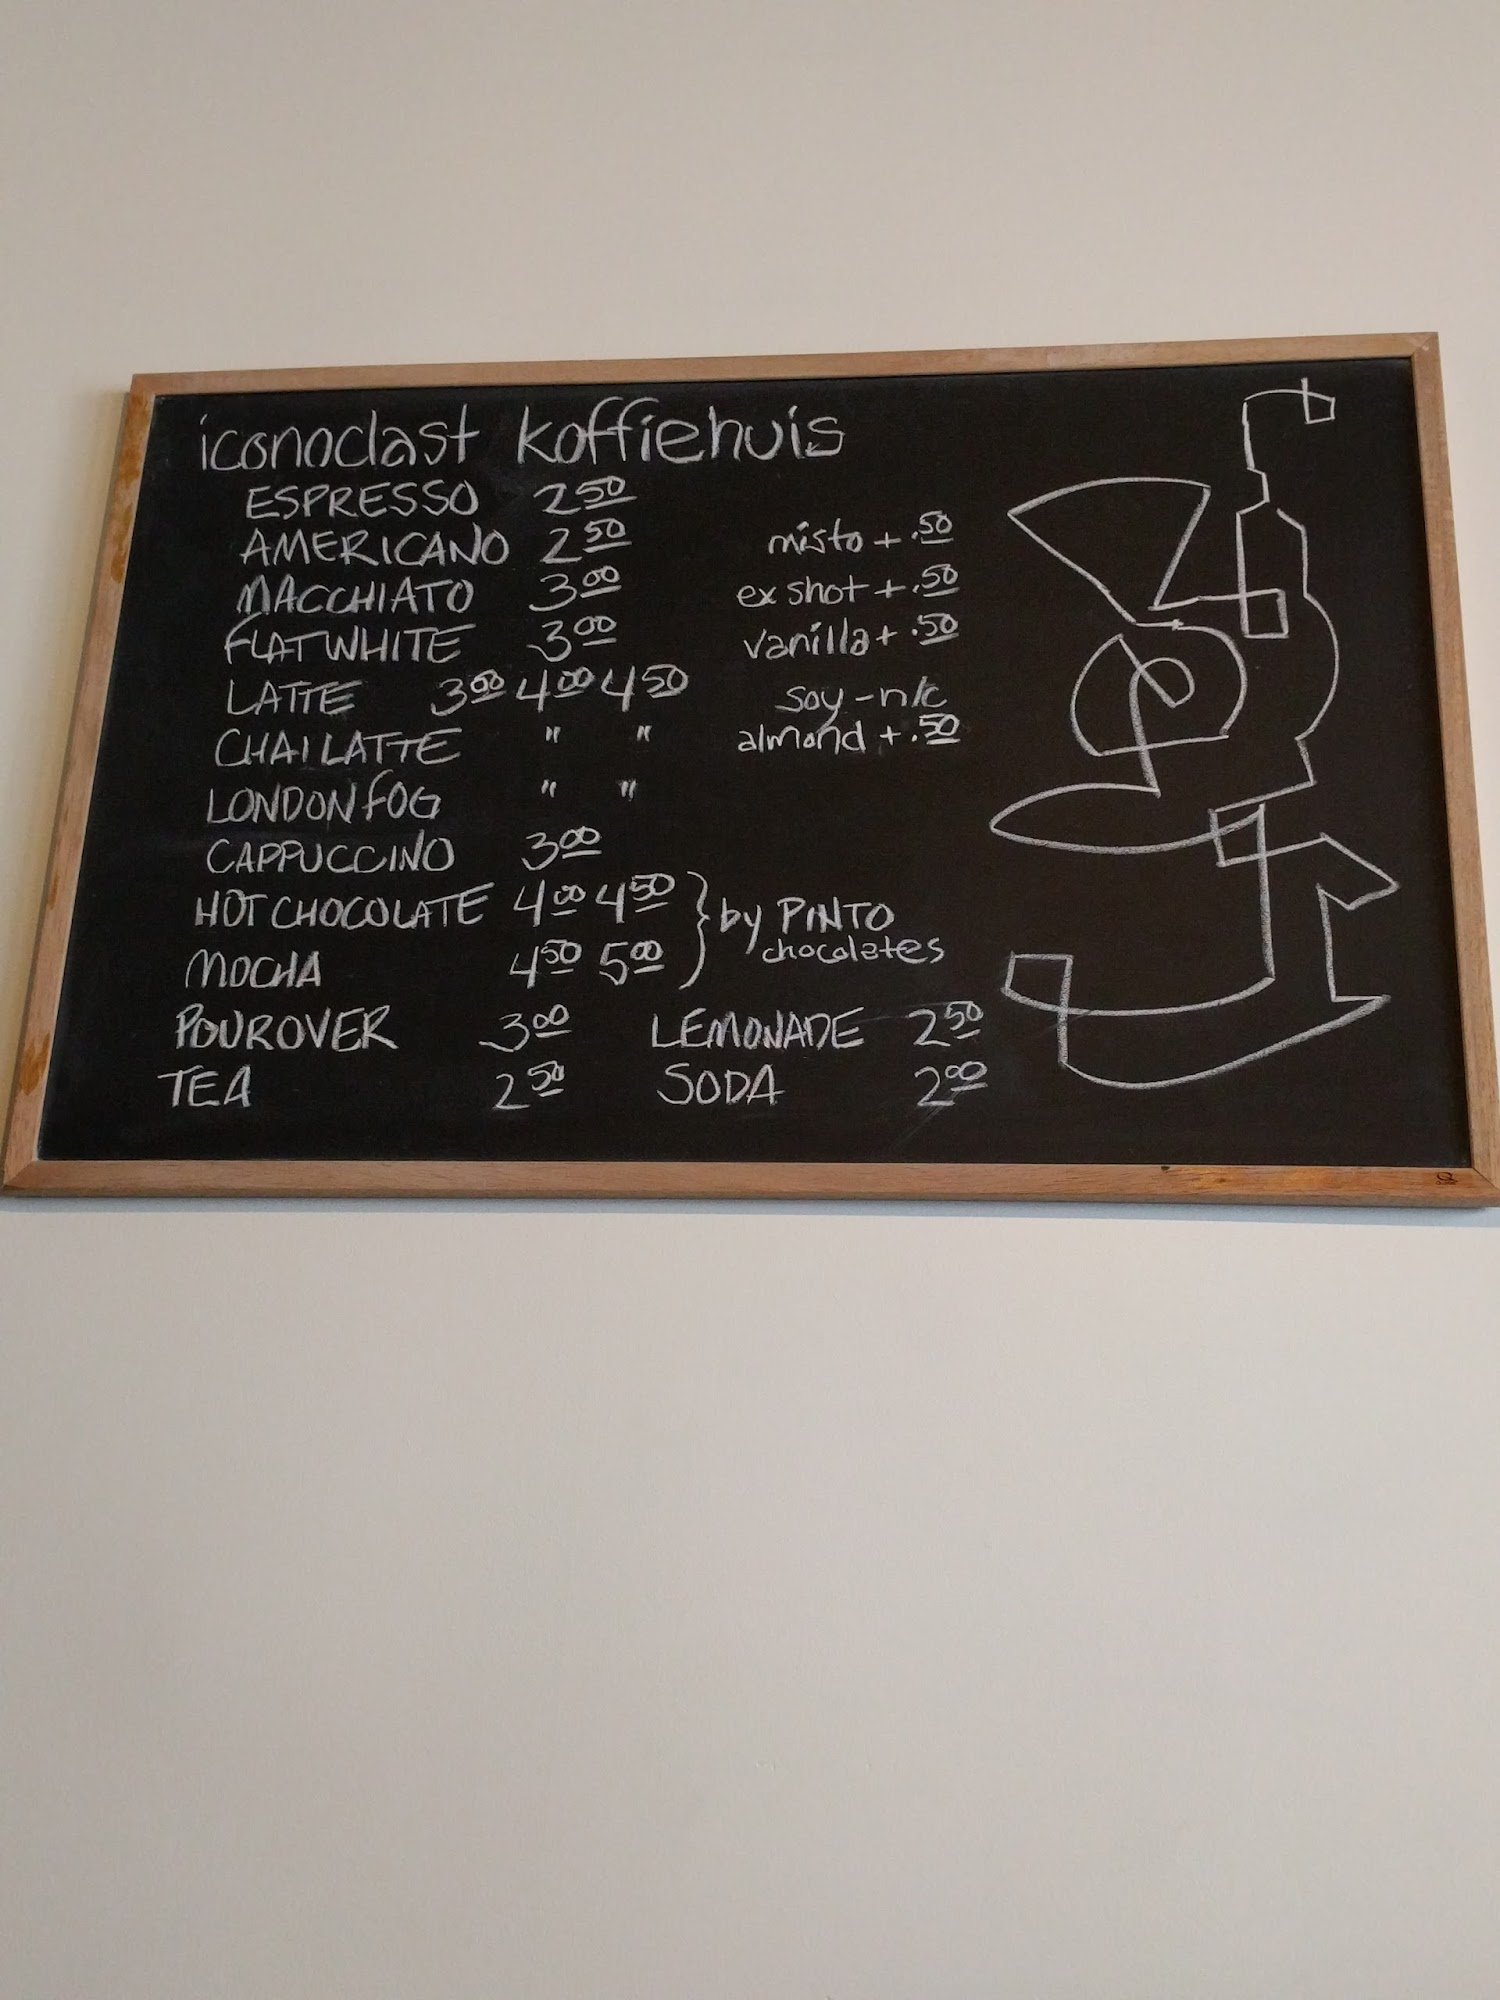 iconoclast koffiehuis
ESPRESSO 2 50
AMERICANO 2 50
MACCHIATO 3 00
FLAT WHITE 3 00
LATTE 3 00 4 00 4 50
CHAI LATTE " "
LONDON FOG " "
CAPPUCCINO 3 00
HOT CHOCOLATE 4 00 4 50
MOCHA 4 50 5 00
} by PINTO
chocolates
POUROVER 3 00
TEA 2 50
misto + .50
ex shot + .50
vanilla + .50
soy - n/c
almond + .50
LEMONADE 2 50
SODA 2 00